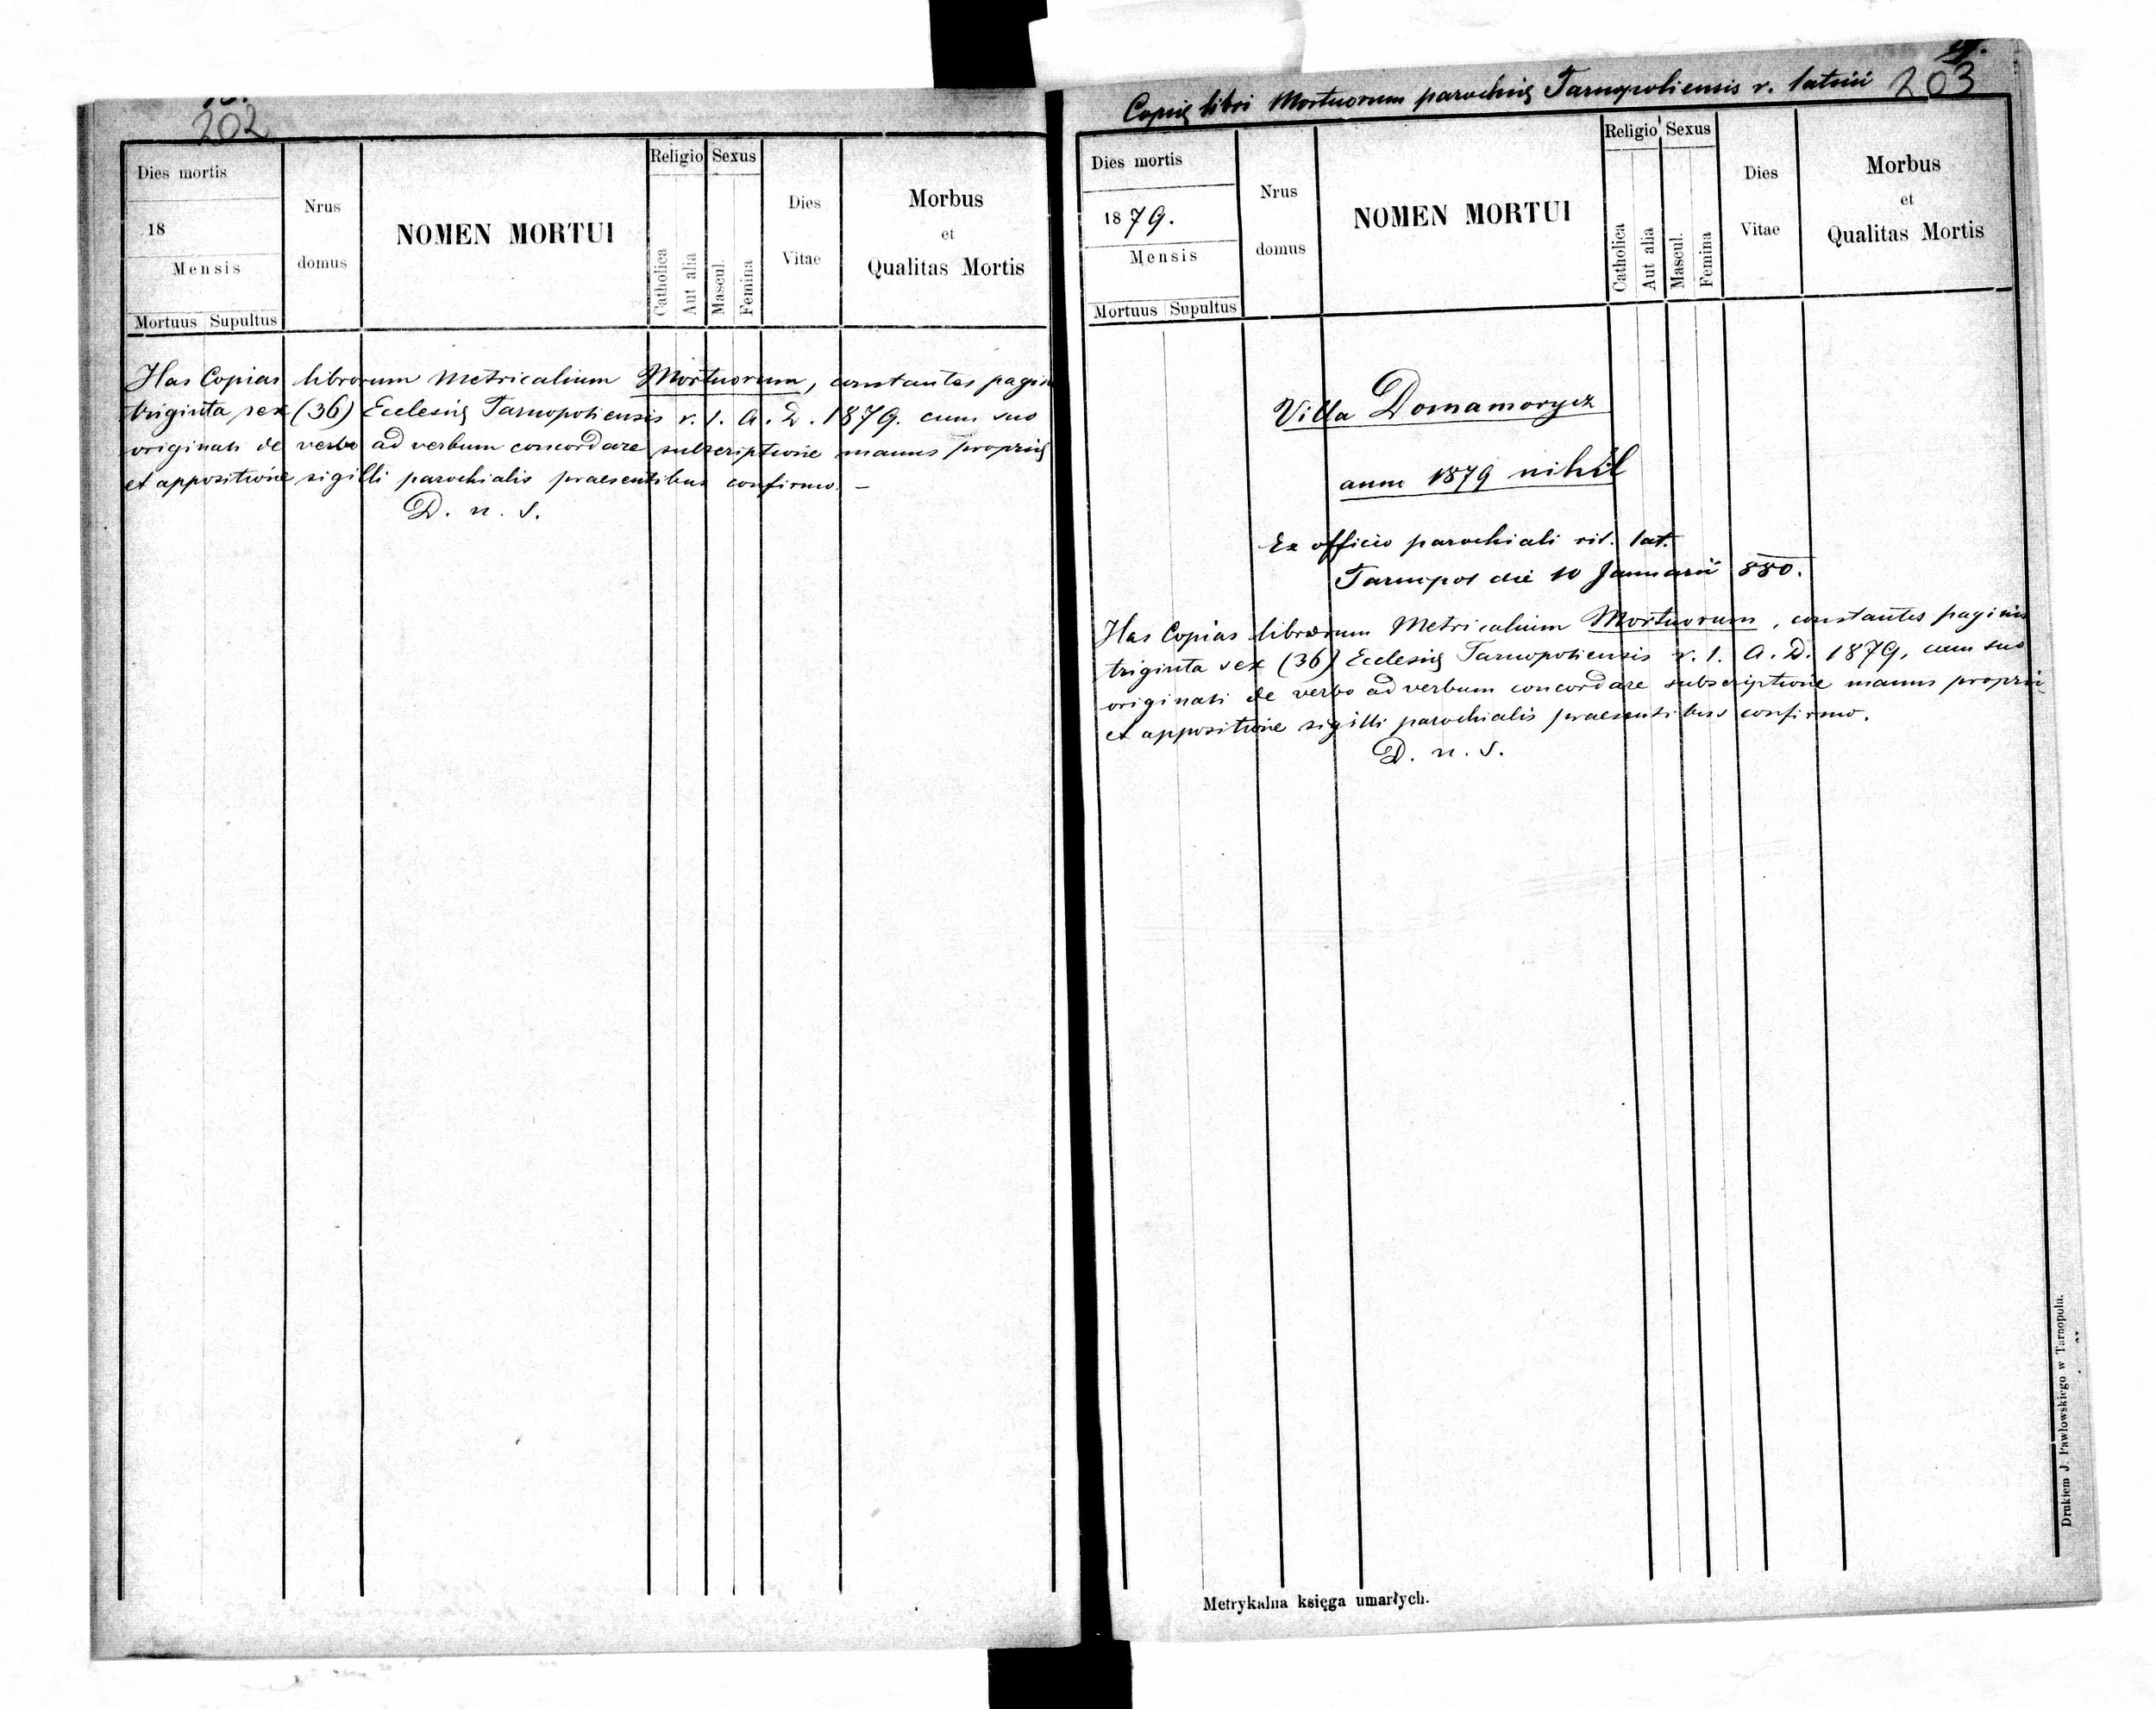 202
Dies mortis
18
Mensis
Mortuus Supultus
Nrus
domus
NOMEN MORTUI
Religio
Catholica
Aut alia
Sexus
Mascul.
Femina
Dies
Vitae
Morbus
et
Qualitas Mortis
Has Copias librorum Metricalium Mortuorum, constantes pagin
triginta sex (36) Ecclesię Tarnopoliensis r. l. A. D. 1879. cum suo
originali de verbo ad verbum concordare subscriptione manus proprię
et appositione sigilli parochialis praesentibus confirmo. –
D. n. S.
Copię libri Mortuorum parochię Tarnopoliensis r. latini 203
Dies mortis
1879.
Mensis
Mortuus Supultus
Nrus
domus
NOMEN MORTUI
Religio
Catholica
Aut alia
Sexus
Mascul.
Femina
Dies
Vitae
Morbus
et
Qualitas Mortis
Villa Domamorycz
anno 1879 nihil
Ex officio parochiali rit. lat.
Tarnopol die 10 Januarii 880.
Has Copias librorum Metricalium Mortuorum, constantes paginis
triginta sex (36) Ecclesię Tarnopoliensis r. l. A. D. 1879, cum suo
originali de verbo ad verbum concordare subscriptione manus propri
et appositione sigilli parochialis praesentibus confirmo.
D. n. S.
Metrykalna księga umarłych.
Drukiem J. Pawłowskiego w Tarnopolu.